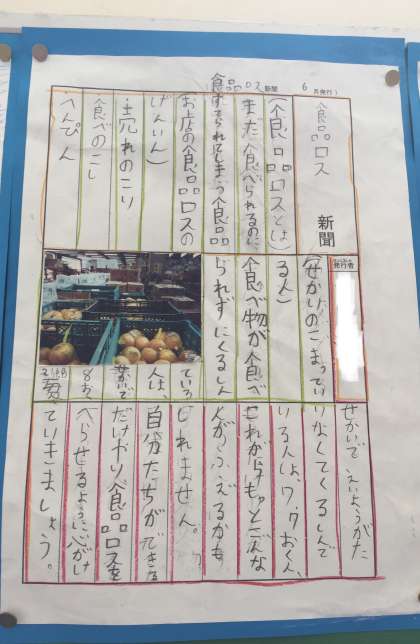 食品ロス新聞
6月発行)
食品ロス
新聞
発行者
(食品ロスとは)
まだ食べられるのに、
すてられてしまう食品
お店の食品ロスの
げんいん)
・売れのこり
食べのこし
へんぴん
(せかいのこまってい
る人)
食べ物が食べ
られずにくるしん
でいる
人は、
せかいで
8おく
せかいでえいようがた
りなくてくるしんで
いる人は、7,7おく人、
これからもっとこんな
人がふえるかも
しれません。
自分たちができる
だけやり食品ロスを
へらせるように心がけ
ていきましょう。